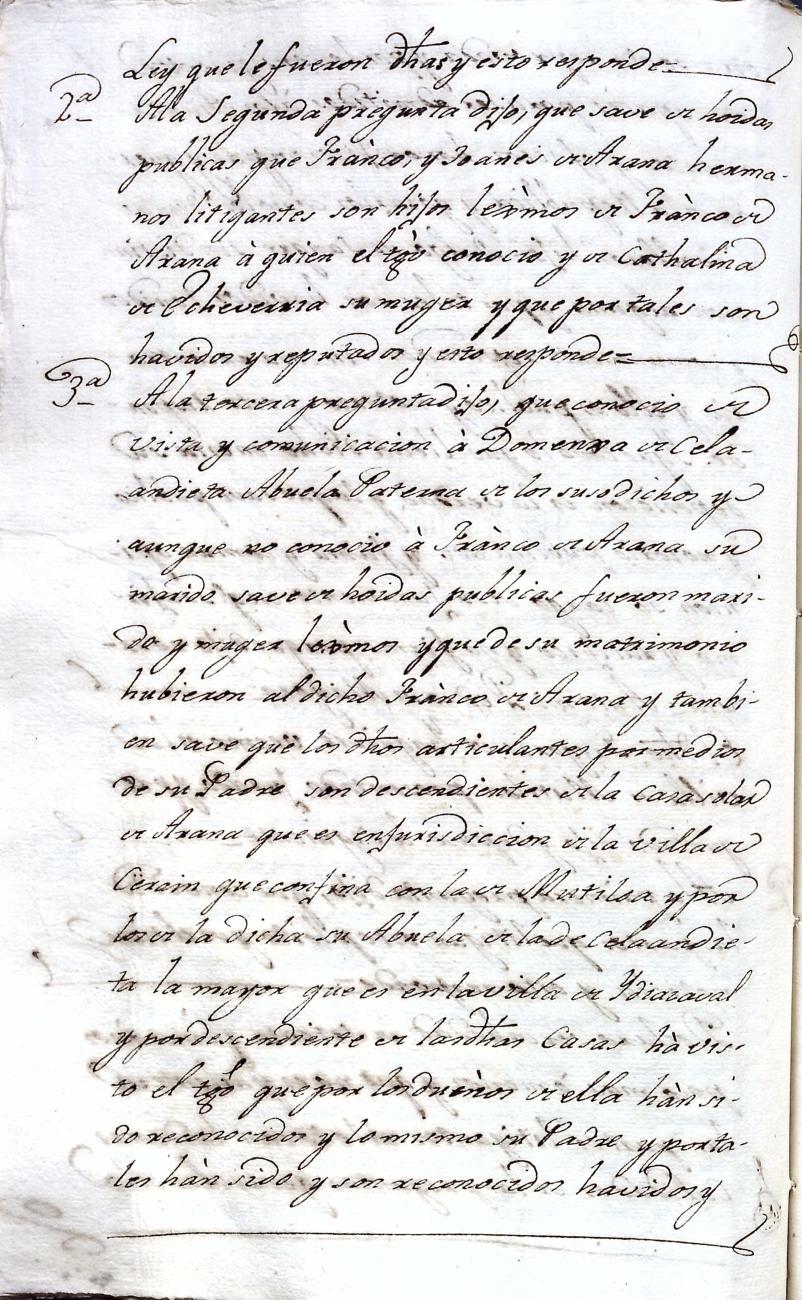 Ley que le fueron dhas y esto responde=
2a Ala Segunda pregunta dijo, que save de hoidas
publicas que Franco, y Joanes de Arana herma-
nos litigantes son hijos lexmos de Franco de
Arana à quien el tgo conocio y de Cathalina
de Echeverria su muger y que por tales son
havidos y reputados y esto responde=
3a Ala tercera pregunta dijo, que conocio de
vista y comunicacion à Domenxa de Cela-
andieta Abuela Paterna de los susodichos y
aunque no conocio à Franco de Arana su
marido save de hoidas publicas fueron mari-
do y muger lexmos y que de su matrimonio
hubieron al dicho Franco de Arana y tambi-
en save que los dhos articulantes por medios
de su Padre son descendientes de la Casa solar
de Arana que es en Jurisdiccion de la villa de
Cerain que confina con la de Mutiloa y por
los de la dicha su Abuela de la de Celaandie-
ta la mayor que es en la villa de Ydiazaval
y por descendiente de las dhas Casas hà vis-
to el tgo que por los dueños de ella hàn si-
do reconocidos y lo mismo su Padre y por ta-
les hàn sido y son reconocidos havidos y